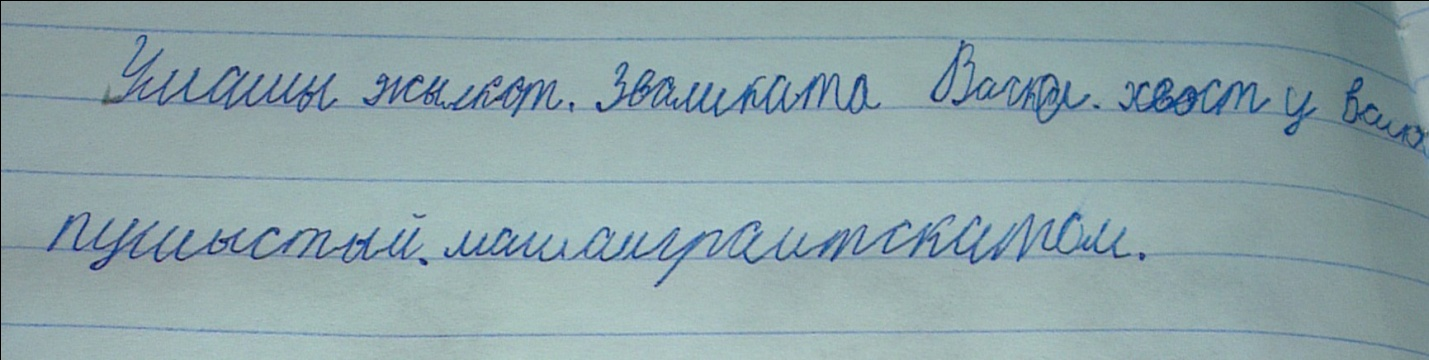 Умашы жылкот. Зваликата Васкй. хвост у васк
пушыстый. машаиграитскатом.